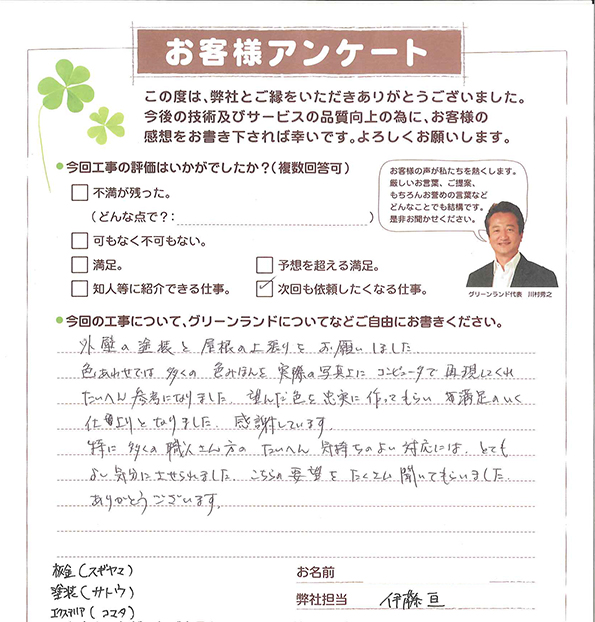 お客様アンケート
この度は、弊社とご縁をいただきありがとうございました。
今後の技術及びサービスの品質向上の為に、お客様の
感想をお書き下されば幸いです。よろしくお願いします。
今回工事の評価はいかがでしたか？(複数回答可)
不満が残った。
(どんな点で？: )
可もなく不可もない。
満足。
予想を超える満足。
知人等に紹介できる仕事。
次回も依頼したくなる仕事。
お客様の声が私たちを熱くします。
厳しいお言葉、ご提案、
もちろんお誉めの言葉など
どんなことでも結構です。
是非お聞かせください。
グリーンランド代表 川村芳之
今回の工事について、グリーンランドについてなどご自由にお書きください。
外壁の塗装と屋根の上張りをお願いしました
色あわせでは多くの色みほんを実際の写真上にコンピュータで再現してくれ
たいへん参考になりました。望んだ色を忠実に作ってもらい 満足のいく
仕上りとなりました。感謝しています。
特に多くの職人さん方のたいへん気持ちのよい対応には、とても
よい気分にさせられました。こちらの要望をたくさん聞いてもらいました。
ありがとうございます。
板金(スギヤマ)
塗装(サトウ)
エクステリア(コスダ)
お名前
弊社担当 伊藤 亘